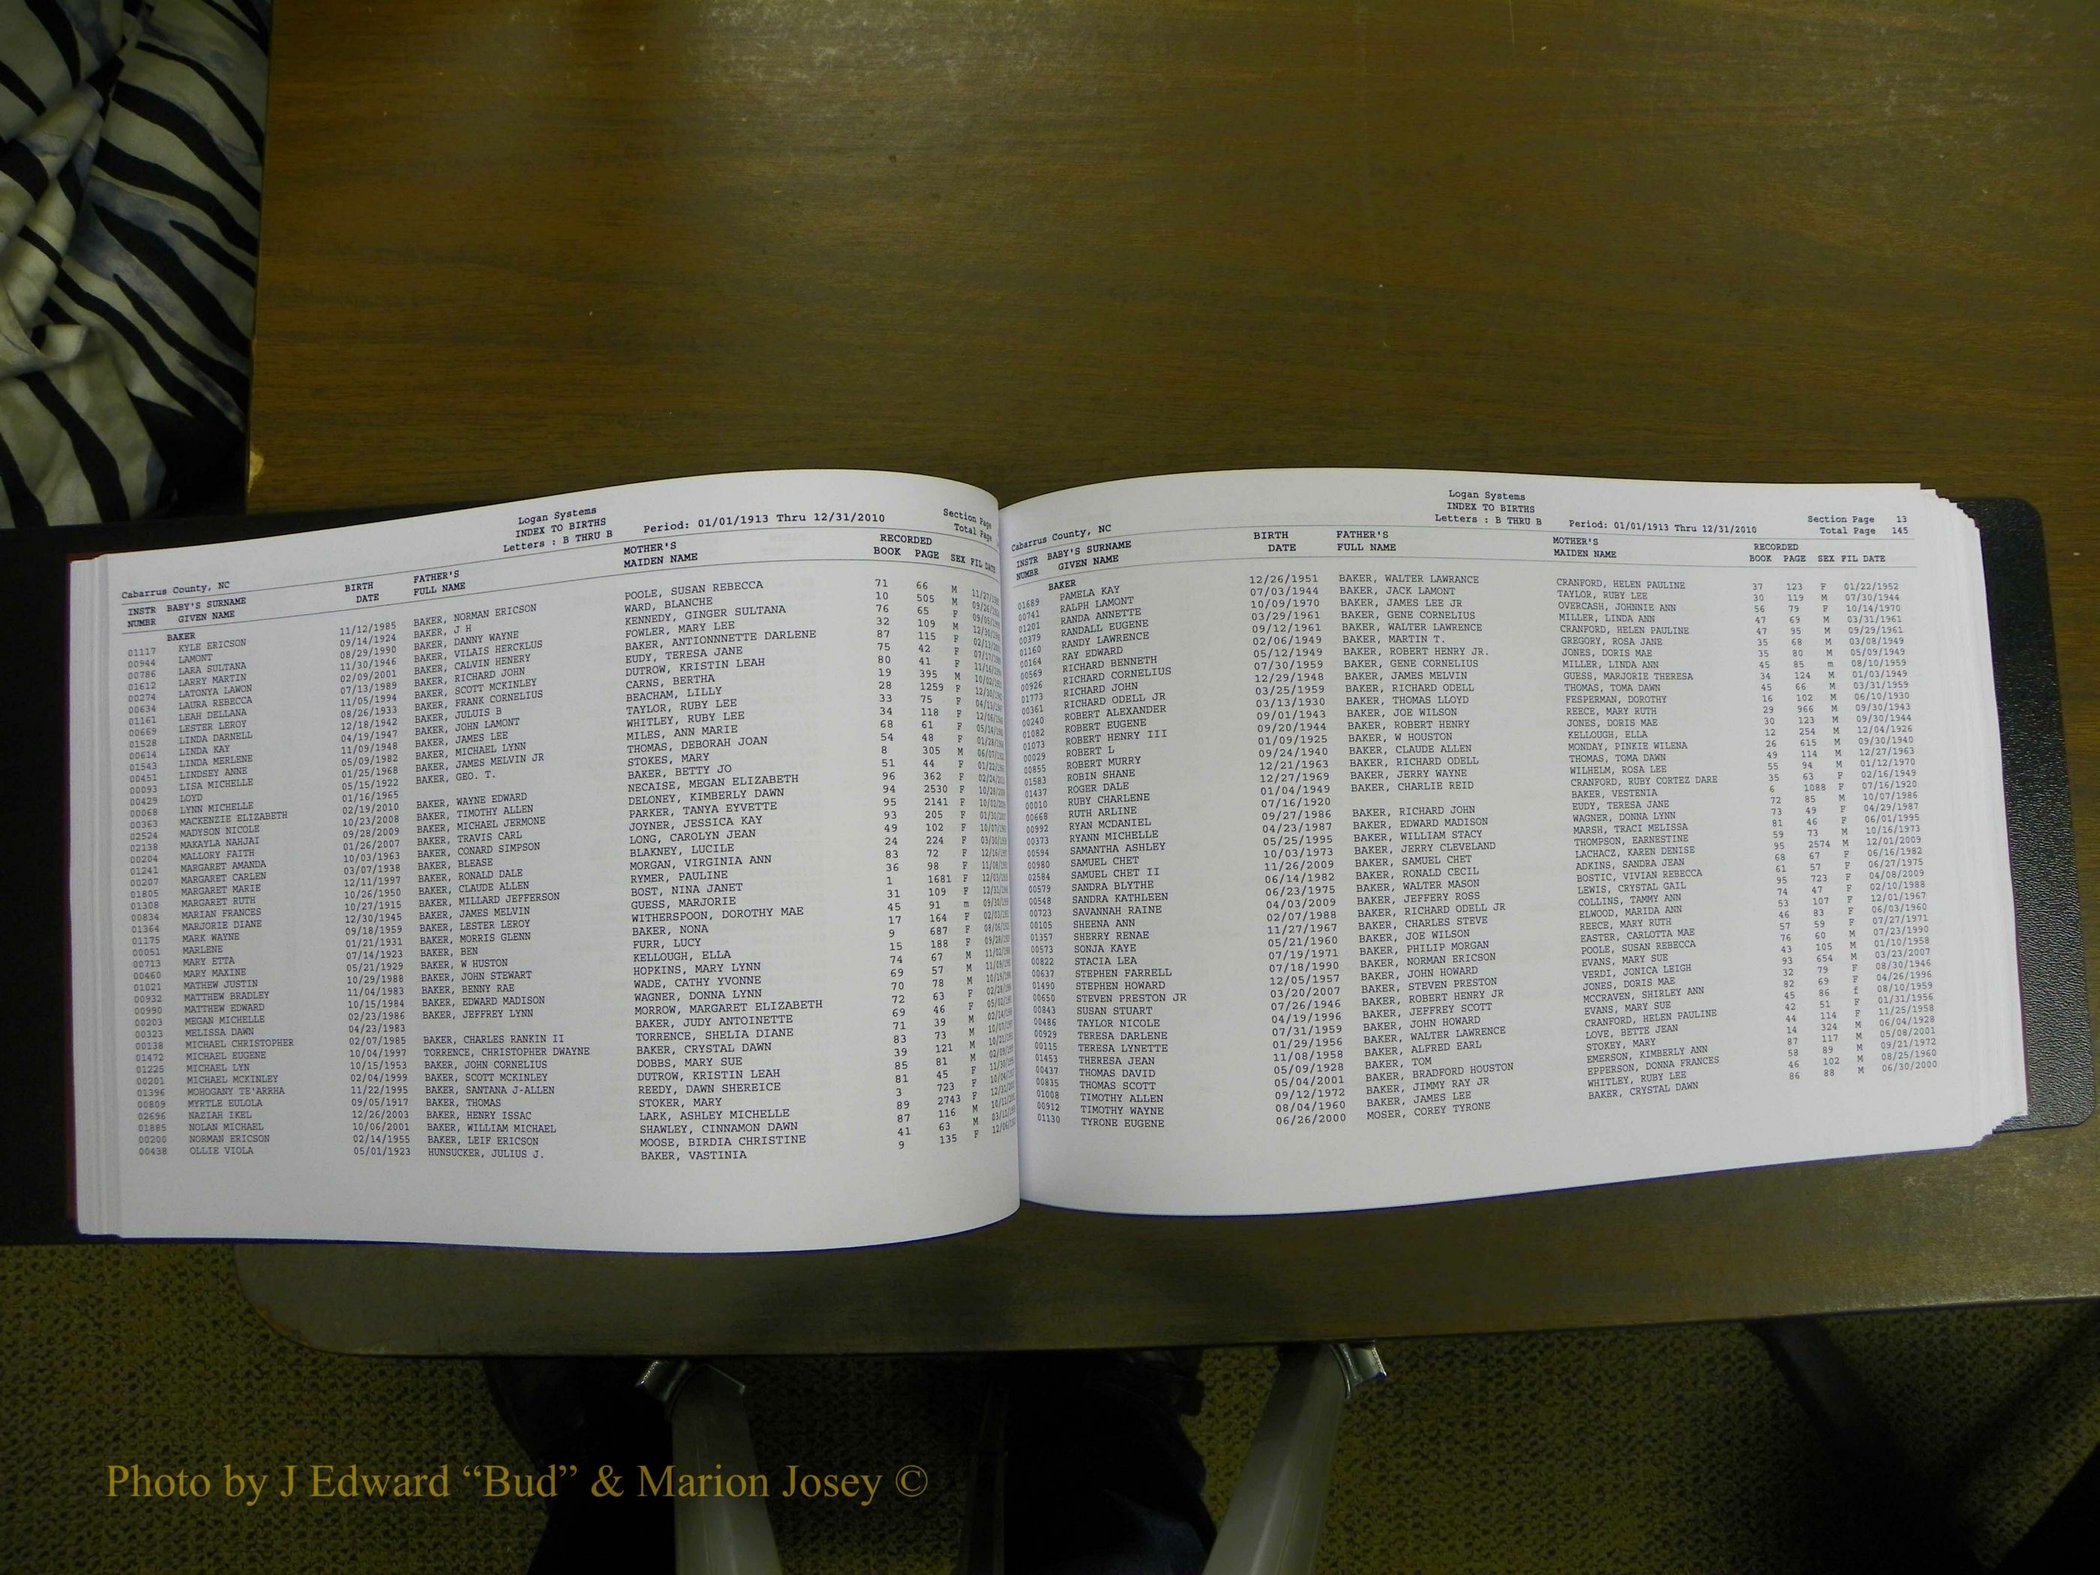 Logan Systems
INDEX TO BIRTHS
Letters : B THRU B Period: 01/01/1913 Thru 12/31/2010
Section Page
Total Page
Cabarrus County, NC
INSTR BABY'S SURNAME BIRTH FATHER'S MOTHER'S RECORDED
NUMBR GIVEN NAME DATE FULL NAME MAIDEN NAME BOOK PAGE SEX FIL DATE
BAKER
01117 KYLE ERICSON 11/12/1985 BAKER, NORMAN ERICSON POOLE, SUSAN REBECCA 71 66 M
00944 LAMONT 09/14/1924 BAKER, J H WARD, BLANCHE 10 505 M
00786 LARA SULTANA 08/29/1990 BAKER, DANNY WAYNE KENNEDY, GINGER SULTANA 76 65 F
01612 LARRY MARTIN 11/30/1946 BAKER, VILAIS HERCKLUS FOWLER, MARY LEE 32 109 M
00274 LATONYA LAWON 02/09/2001 BAKER, CALVIN HENERY BAKER, ANTIONNNETTE DARLENE 87 115 F
00634 LAURA REBECCA 07/13/1989 BAKER, RICHARD JOHN EUDY, TERESA JANE 75 42 F
01161 LEAH DELLANA 11/05/1994 BAKER, SCOTT MCKINLEY DUTROW, KRISTIN LEAH 80 41 F
00669 LESTER LEROY 08/26/1933 BAKER, FRANK CORNELIUS CARNS, BERTHA 19 395 M
01528 LINDA DARNELL 12/18/1942 BAKER, JULUIS B BEACHAM, LILLY 28 1259 F
00614 LINDA KAY 04/19/1947 BAKER, JOHN LAMONT TAYLOR, RUBY LEE 33 75 F
01543 LINDA MERLENE 11/09/1948 BAKER, JAMES LEE WHITLEY, RUBY LEE 34 118 F
00451 LINDSEY ANNE 05/09/1982 BAKER, MICHAEL LYNN MILES, ANN MARIE 68 61 F
00093 LISA MICHELLE 01/25/1968 BAKER, JAMES MELVIN JR THOMAS, DEBORAH JOAN 54 48 F
00429 LOYD 05/15/1922 BAKER, GEO. T. STOKES, MARY 8 305 M
00068 LYNN MICHELLE 01/16/1965 BAKER, BETTY JO 51 44 F
00363 MACKENZIE ELIZABETH 02/19/2010 BAKER, WAYNE EDWARD NECAISE, MEGAN ELIZABETH 96 362 F
02524 MADYSON NICOLE 10/23/2008 BAKER, TIMOTHY ALLEN DELONEY, KIMBERLY DAWN 94 2530 F
02138 MAKAYLA NAHJAI 09/28/2009 BAKER, MICHAEL JERMONE PARKER, TANYA EYVETTE 95 2141 F
00204 MALLORY FAITH 01/26/2007 BAKER, TRAVIS CARL JOYNER, JESSICA KAY 93 205 F
01241 MARGARET AMANDA 10/03/1963 BAKER, CONARD SIMPSON LONG, CAROLYN JEAN 49 102 F
00207 MARGARET CARLEN 03/07/1938 BAKER, BLEASE BLAKNEY, LUCILE 24 224 F
01805 MARGARET MARIE 12/11/1997 BAKER, RONALD DALE MORGAN, VIRGINIA ANN 83 72 F
01308 MARGARET RUTH 10/26/1950 BAKER, CLAUDE ALLEN RYMER, PAULINE 36 98 F
00834 MARIAN FRANCES 10/27/1915 BAKER, MILLARD JEFFERSON BOST, NINA JANET 1 1681 F
01364 MARJORIE DIANE 12/30/1945 BAKER, JAMES MELVIN GUESS, MARJORIE 31 109 F
01175 MARK WAYNE 09/18/1959 BAKER, LESTER LEROY WITHERSPOON, DOROTHY MAE 45 91 m
00051 MARLENE 01/21/1931 BAKER, MORRIS GLENN BAKER, NONA 17 164 F
00713 MARY ETTA 07/14/1923 BAKER, BEN FURR, LUCY 9 687 F
00460 MARY MAXINE 05/21/1929 BAKER, W HUSTON KELLOUGH, ELLA 15 188 F
01021 MATHEW JUSTIN 10/29/1988 BAKER, JOHN STEWART HOPKINS, MARY LYNN 74 67 M
00932 MATTHEW BRADLEY 11/04/1983 BAKER, BENNY RAE WADE, CATHY YVONNE 69 57 M
00990 MATTHEW EDWARD 10/15/1984 BAKER, EDWARD MADISON WAGNER, DONNA LYNN 70 78 M
00203 MEGAN MICHELLE 02/23/1986 BAKER, JEFFREY LYNN MORROW, MARGARET ELIZABETH 72 63 F
00323 MELISSA DAWN 04/23/1983 BAKER, JUDY ANTOINETTE 69 46 F
00138 MICHAEL CHRISTOPHER 02/07/1985 BAKER, CHARLES RANKIN II TORRENCE, SHELIA DIANE 71 39 M
01472 MICHAEL EUGENE 10/04/1997 TORRENCE, CHRISTOPHER DWAYNE BAKER, CRYSTAL DAWN 83 73 M
01225 MICHAEL LYN 10/15/1953 BAKER, JOHN CORNELIUS DOBBS, MARY SUE 39 121 M
00201 MICHAEL MCKINLEY 02/04/1999 BAKER, SCOTT MCKINLEY DUTROW, KRISTIN LEAH 85 81 M
01396 MOHOGANY TE'ARRHA 11/22/1995 BAKER, SANTANA J-ALLEN REEDY, DAWN SHEREICE 81 45 F
00809 MYRTLE EULOLA 09/05/1917 BAKER, THOMAS STOKER, MARY 3 723 F
02696 NAZIAH IKEL 12/26/2003 BAKER, HENRY ISSAC LARK, ASHLEY MICHELLE 89 2743 M
01885 NOLAN MICHAEL 10/06/2001 BAKER, WILLIAM MICHAEL SHAWLEY, CINNAMON DAWN 87 116 M
00200 NORMAN ERICSON 02/14/1955 BAKER, LEIF ERICSON MOOSE, BIRDIA CHRISTINE 41 63 M
00438 OLLIE VIOLA 05/01/1923 HUNSUCKER, JULIUS J. BAKER, VASTINIA 9 135 F
Logan Systems
INDEX TO BIRTHS
Letters : B THRU B Period: 01/01/1913 Thru 12/31/2010
Section Page 13
Total Page 145
Cabarrus County, NC
INSTR BABY'S SURNAME BIRTH FATHER'S MOTHER'S RECORDED
NUMBR GIVEN NAME DATE FULL NAME MAIDEN NAME BOOK PAGE SEX FIL DATE
BAKER
01689 PAMELA KAY 12/26/1951 BAKER, WALTER LAWRANCE CRANFORD, HELEN PAULINE 37 123 F 01/22/1952
00741 RALPH LAMONT 07/03/1944 BAKER, JACK LAMONT TAYLOR, RUBY LEE 30 119 M 07/30/1944
01201 RANDA ANNETTE 10/09/1970 BAKER, JAMES LEE JR OVERCASH, JOHNNIE ANN 56 79 F 10/14/1970
00379 RANDALL EUGENE 03/29/1961 BAKER, GENE CORNELIUS MILLER, LINDA ANN 47 69 M 03/31/1961
01160 RANDY LAWRENCE 09/12/1961 BAKER, WALTER LAWRENCE CRANFORD, HELEN PAULINE 47 95 M 09/29/1961
00164 RAY EDWARD 02/06/1949 BAKER, MARTIN T. GREGORY, ROSA JANE 35 68 M 03/08/1949
00569 RICHARD BENNETH 05/12/1949 BAKER, ROBERT HENRY JR. JONES, DORIS MAE 35 80 M 05/09/1949
00926 RICHARD CORNELIUS 07/30/1959 BAKER, GENE CORNELIUS MILLER, LINDA ANN 45 85 m 08/10/1959
01773 RICHARD JOHN 12/29/1948 BAKER, JAMES MELVIN GUESS, MARJORIE THERESA 34 124 M 01/03/1949
00361 RICHARD ODELL JR 03/25/1959 BAKER, RICHARD ODELL THOMAS, TOMA DAWN 45 66 M 03/31/1959
00240 ROBERT ALEXANDER 03/13/1930 BAKER, THOMAS LLOYD FESPERMAN, DOROTHY 16 102 M 06/10/1930
01082 ROBERT EUGENE 09/01/1943 BAKER, JOE WILSON REECE, MARY RUTH 29 966 M 09/30/1943
01073 ROBERT HENRY III 09/20/1944 BAKER, ROBERT HENRY JONES, DORIS MAE 30 123 M 09/30/1944
00029 ROBERT L 01/09/1925 BAKER, W HOUSTON KELLOUGH, ELLA 12 254 M 12/04/1926
00855 ROBERT MURRY 09/24/1940 BAKER, CLAUDE ALLEN MONDAY, PINKIE WILENA 26 615 M 09/30/1940
01583 ROBIN SHANE 12/21/1963 BAKER, RICHARD ODELL THOMAS, TOMA DAWN 49 114 M 12/27/1963
01437 ROGER DALE 12/27/1969 BAKER, JERRY WAYNE WILHELM, ROSA LEE 55 94 M 01/12/1970
00010 RUBY CHARLENE 01/04/1949 BAKER, CHARLIE REID CRANFORD, RUBY CORTEZ DARE 35 63 F 02/16/1949
00668 RUTH ARLINE 07/16/1920 BAKER, VESTENIA 6 1088 F 07/16/1920
00992 RYAN MCDANIEL 09/27/1986 BAKER, RICHARD JOHN EUDY, TERESA JANE 72 85 M 10/07/1986
00373 RYANN MICHELLE 04/23/1987 BAKER, EDWARD MADISON WAGNER, DONNA LYNN 73 49 F 04/29/1987
00594 SAMANTHA ASHLEY 05/25/1995 BAKER, WILLIAM STACY MARSH, TRACI MELISSA 81 46 F 06/01/1995
00980 SAMUEL CHET 10/03/1973 BAKER, JERRY CLEVELAND THOMPSON, EARNESTINE 59 73 M 10/16/1973
02584 SAMUEL CHET II 11/26/2009 BAKER, SAMUEL CHET LACHACZ, KAREN DENISE 95 2574 M 12/01/2009
00579 SANDRA BLYTHE 06/14/1982 BAKER, RONALD CECIL ADKINS, SANDRA JEAN 68 67 F 06/16/1982
00548 SANDRA KATHLEEN 06/23/1975 BAKER, WALTER MASON BOSTIC, VIVIAN REBECCA 61 57 F 06/27/1975
00723 SAVANNAH RAINE 04/03/2009 BAKER, JEFFERY ROSS LEWIS, CRYSTAL GAIL 95 723 F 04/08/2009
00105 SHEENA ANN 02/07/1988 BAKER, RICHARD ODELL JR COLLINS, TAMMY ANN 74 47 F 02/10/1988
01357 SHERRY RENAE 11/27/1967 BAKER, CHARLES STEVE ELWOOD, MARIDA ANN 53 107 F 12/01/1967
00573 SONJA KAYE 05/21/1960 BAKER, JOE WILSON REECE, MARY RUTH 46 83 F 06/03/1960
00822 STACIA LEA 07/19/1971 BAKER, PHILIP MORGAN EASTER, CARLOTTA MAE 57 59 F 07/27/1971
00637 STEPHEN FARRELL 07/18/1990 BAKER, NORMAN ERICSON POOLE, SUSAN REBECCA 76 60 M 07/23/1990
01490 STEPHEN HOWARD 12/05/1957 BAKER, JOHN HOWARD EVANS, MARY SUE 43 105 M 01/10/1958
00650 STEVEN PRESTON JR 03/20/2007 BAKER, STEVEN PRESTON VERDI, JONICA LEIGH 93 654 M 03/23/2007
00843 SUSAN STUART 07/26/1946 BAKER, ROBERT HENRY JR JONES, DORIS MAE 32 79 F 08/30/1946
00486 TAYLOR NICOLE 04/19/1996 BAKER, JEFFREY SCOTT MCCRAVEN, SHIRLEY ANN 82 69 F 04/26/1996
00929 TERESA DARLENE 07/31/1959 BAKER, JOHN HOWARD EVANS, MARY SUE 45 86 f 08/10/1959
00115 TERESA LYNETTE 01/29/1956 BAKER, WALTER LAWRENCE CRANFORD, HELEN PAULINE 42 51 F 01/31/1956
01453 THERESA JEAN 11/08/1958 BAKER, ALFRED EARL LOVE, BETTE JEAN 44 114 F 11/25/1958
00437 THOMAS DAVID 05/09/1928 BAKER, TOM STOKEY, MARY 14 324 M 06/04/1928
00835 THOMAS SCOTT 05/04/2001 BAKER, BRADFORD HOUSTON EMERSON, KIMBERLY ANN 87 117 M 05/08/2001
01008 TIMOTHY ALLEN 09/12/1972 BAKER, JIMMY RAY JR EPPERSON, DONNA FRANCES 58 89 M 09/21/1972
00912 TIMOTHY WAYNE 08/04/1960 BAKER, JAMES LEE WHITLEY, RUBY LEE 46 102 M 08/25/1960
01130 TYRONE EUGENE 06/26/2000 MOSER, COREY TYRONE BAKER, CRYSTAL DAWN 86 88 M 06/30/2000
Photo by J Edward “Bud” & Marion Josey ©